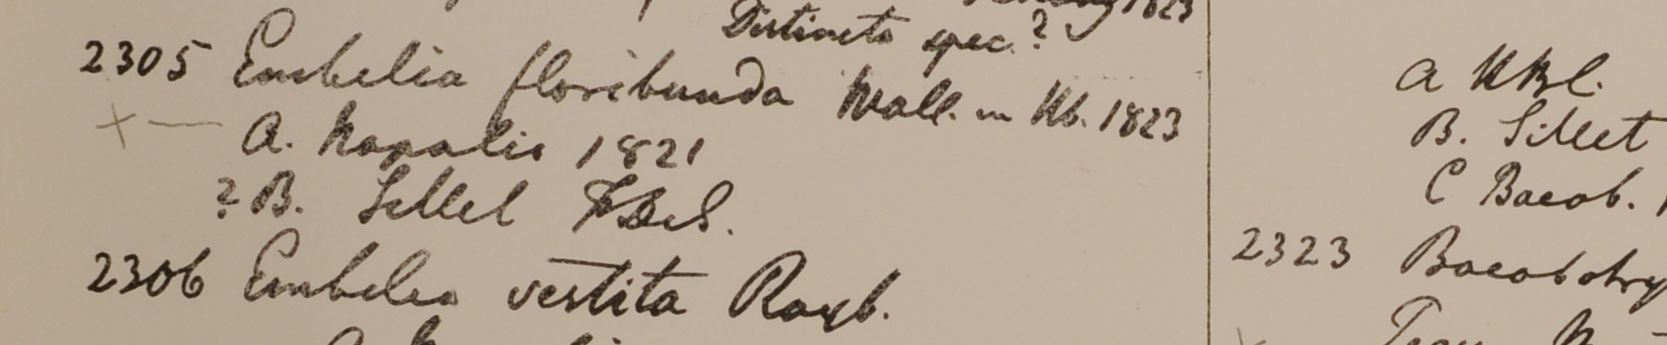 1823
Distincta spec.?
2305 Embelia floribunda Wall. in Hb. 1823
A. Napalia 1821
? B. Sillet
2306 Embelia vestita Roxb.
a HBC.
B. Sillet
C Baeob.
2323 Baeobotry